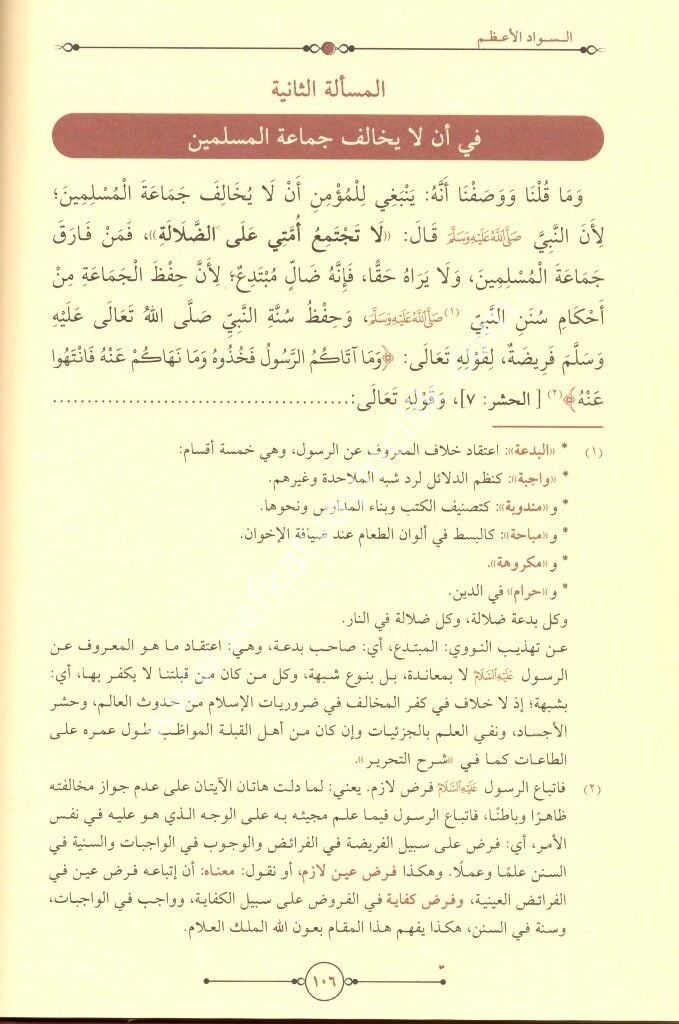 السواد الأعظم
المسألة الثانية
في أن لا يخالف جماعة المسلمين
وَمَا قُلْنَا وَوَصَفْنَا أَنَّهُ: يَنْبَغِي لِلْمُؤْمِنِ أَنْ لَا يُخَالِفَ جَمَاعَةَ الْمُسْلِمِينَ؛
لِأَنَّ النَّبِيَّ ﷺ قَالَ: «لَا تَجْتَمِعُ أُمَّتِي عَلَى الضَّلَالَةِ»، فَمَنْ فَارَقَ
جَمَاعَةَ الْمُسْلِمِينَ، وَلَا يَرَاهُ حَقًّا، فَإِنَّهُ ضَالٌّ مُبْتَدِعٌ؛ لِأَنَّ حِفْظَ الْجَمَاعَةِ مِنْ
أَحْكَامِ سُنَنِ النَّبِيِّ (١) ﷺ، وَحِفْظُ سُنَّةِ النَّبِيِّ صَلَّى اللهُ تَعَالَى عَلَيْهِ
وَسَلَّمَ فَرِيضَةٌ، لِقَوْلِهِ تَعَالَى: ﴿وَمَا آتَاكُمُ الرَّسُولُ فَخُذُوهُ وَمَا نَهَاكُمْ عَنْهُ فَانْتَهُوا
عَنْهُ﴾(٢) [الحشر: ٧]، وَقَوْلِهِ تَعَالَى:........................................
(١) * «البدعة»: اعتقاد خلاف المعروف عن الرسول، وهي خمسة أقسام:
* «واجبة»: كنظم الدلائل لرد شبه الملاحدة وغيرهم.
* و«مندوبة»: كتصنيف الكتب وبناء المدارس ونحوها.
* و«مباحة»: كالبسط في ألوان الطعام عند ضيافة الإخوان.
* و«مكروهة».
* و«حرام» في الدين.
وكل بدعة ضلالة، وكل ضلالة في النار.
عن تهذيب النووي: المبتدع، أي: صاحب بدعة، وهي: اعتقاد ما هو المعروف عن
الرسول عَلَيْهِ السَّلَامُ لا بمعاندة، بل بنوع شبهة، وكل من كان من قبلتنا لا يكفر بها، أي:
بشبهة؛ إذ لا خلاف في كفر المخالف في ضروريات الإسلام من حدوث العالم، وحشر
الأجساد، ونفي العلم بالجزئيات وإن كان من أهل القبلة المواظب طول عمره على
الطاعات كما في «شرح التحرير».
(٢) فاتباع الرسول عَلَيْهِ السَّلَامُ فرض لازم. يعني: لما دلت هاتان الآيتان على عدم جواز مخالفته
ظاهرًا وباطنًا، فاتباع الرسول فيما علم مجيئه به على الوجه الذي هو عليه في نفس
الأمر، أي: فرض على سبيل الفريضة في الفرائض والوجوب في الواجبات والسنية في
السنن علمًا وعملًا. وهكذا فرض عين لازم، أو نقول: معناه: أن إتباعه فرض عين في
الفرائض العينية، وفرض كفاية في الفروض على سبيل الكفاية، وواجب في الواجبات،
وسنة في السنن، هكذا يفهم هذا المقام بعون الله الملك العلام.
١٠٦